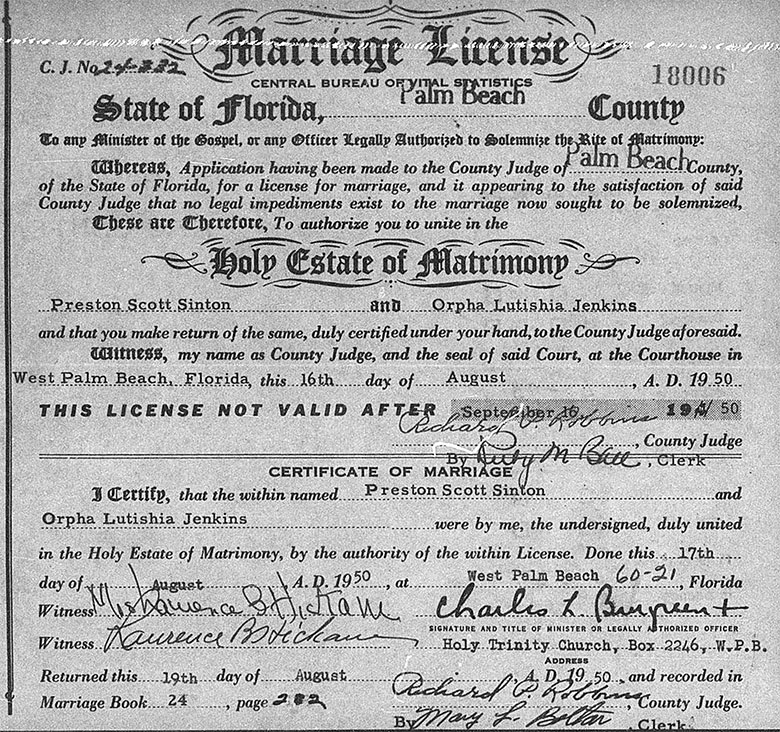 Marriage License
C. J. No. 24-232
18006
CENTRAL BUREAU OF VITAL STATISTICS
State of Florida, Palm Beach County
To any Minister of the Gospel, or any Officer Legally Authorized to Solemnize the Rite of Matrimony:
Whereas, Application having been made to the County Judge of Palm Beach County,
of the State of Florida, for a license for marriage, and it appearing to the satisfaction of said
County Judge that no legal impediments exist to the marriage now sought to be solemnized,
These are Therefore, To authorize you to unite in the
Holy Estate of Matrimony
Preston Scott Sinton and Orpha Lutishia Jenkins
and that you make return of the same, duly certified under your hand, to the County Judge aforesaid.
Witness, my name as County Judge, and the seal of said Court, at the Courthouse in
West Palm Beach, Florida, this 16th day of August, A. D. 19 50
THIS LICENSE NOT VALID AFTER September 16, 19 50
Richard P. Robbins, County Judge
By Ruby M Ball, Clerk
CERTIFICATE OF MARRIAGE
I Certify, that the within named Preston Scott Sinton and
Orpha Lutishia Jenkins were by me, the undersigned, duly united
in the Holy Estate of Matrimony, by the authority of the within License. Done this 17th
day of August A. D. 19 50, at West Palm Beach 60-21, Florida
Witness Mrs Lawrence B Hickam Charles L.
SIGNATURE AND TITLE OF MINISTER OR LEGALLY AUTHORIZED OFFICER
Witness Lawrence B Hickam Holy Trinity Church, Box 2246, W.P.B.
ADDRESS
Returned this 19th day of August A. D. 19 50, and recorded in
Marriage Book 24, page 232 Richard P. Robbins, County Judge.
By Mary L. , Clerk.